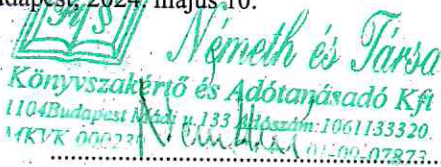 Budapest, 2024. május 10.
Németh és Társa
Könyvszakértő és Adótanásadó Kft
1104Budapest Mádi u.133 Adószám:1061133320.
MKVK 00023 01-09-07873